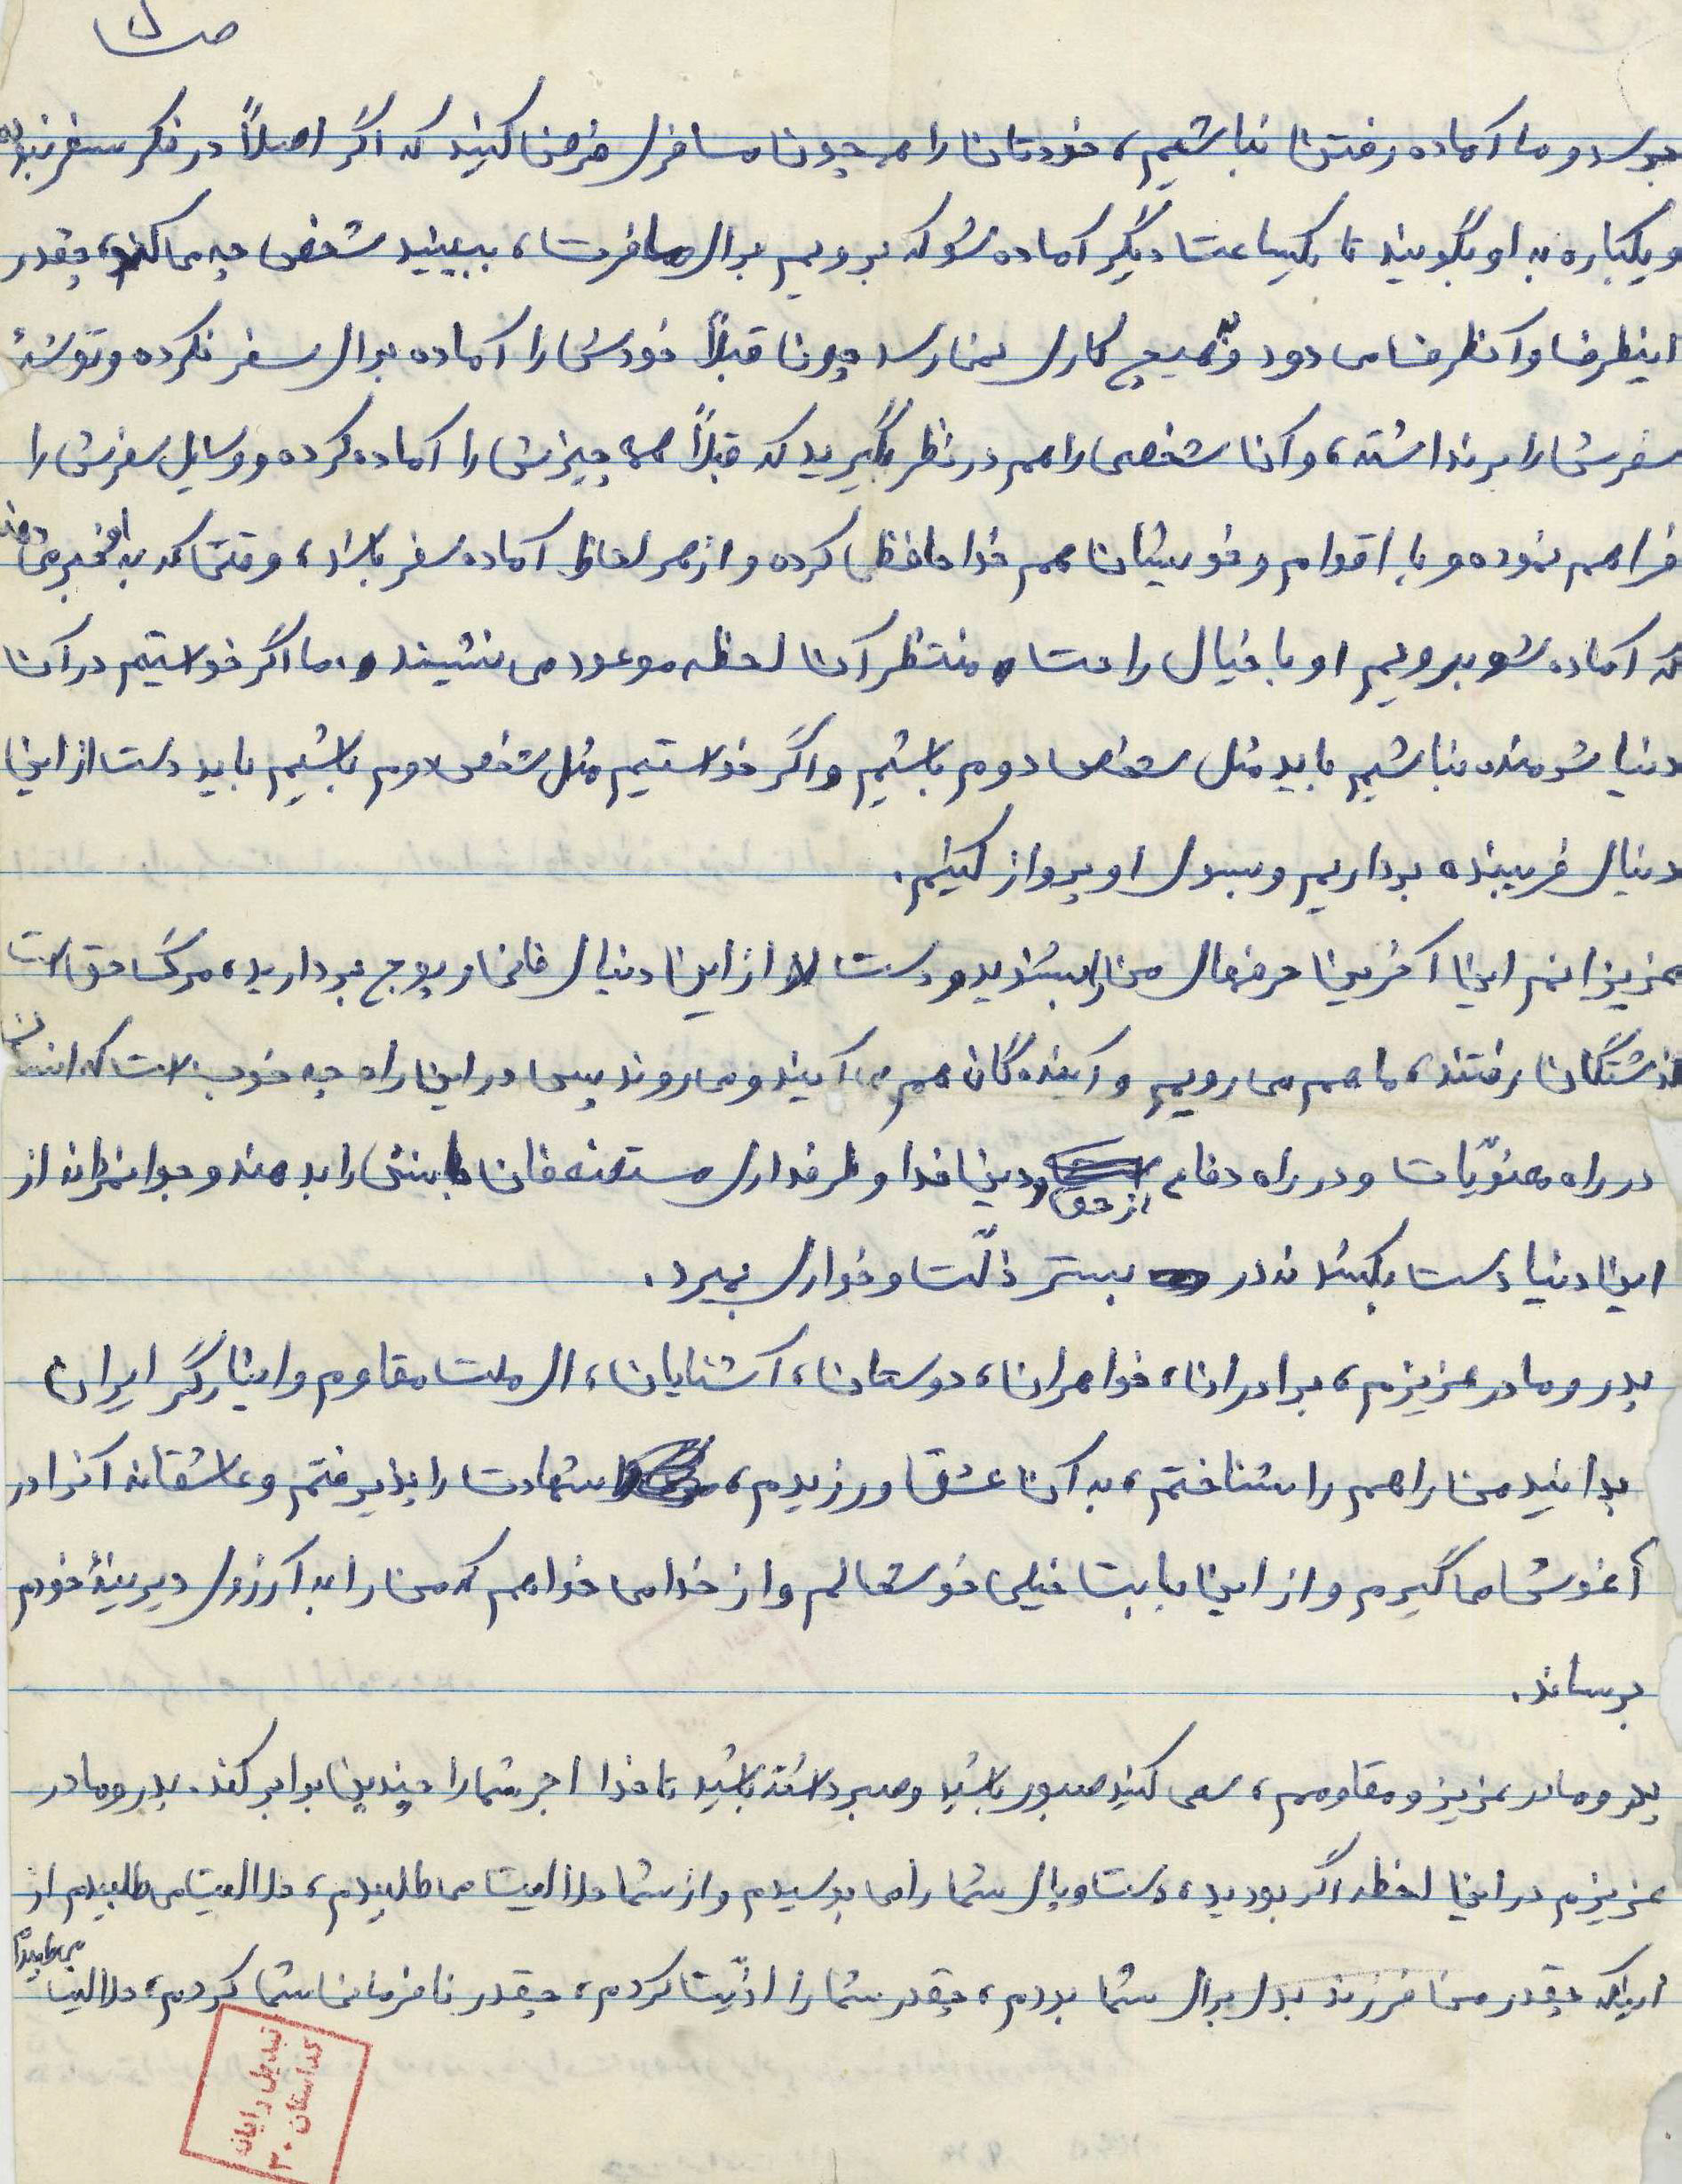 ص ۵
برسد و ما آماده رفتن نباشیم، خودتان را همچون مسافری فرض کنید که اگر اصلاً در فکر سفر نبوده
و یکباره به او بگویند تا یکساعت دیگر آماده شو که برویم برای مسافرت، ببینید شخص چه می‌کند، چقدر
اینطرف و آنطرف می‌دود و به هیچ کاری نمی‌رسد چون قبلاً خودش را آماده برای سفر نکرده و توشهٔ
سفرش را برنداشته، و آن شخصی را هم در نظر بگیرید که قبلاً همه چیزش را آماده کرده و وسایل سفرش را
فراهم نموده و با اقوام و خویشان هم خداحافظی کرده و از هر لحاظ آماده سفر باشد، وقتی که به او خبر می‌دهند
که آماده شو برویم او با خیال راحت منتظر آن لحظه موعود می‌نشیند. ما اگر خواستیم در آن
دنیا شرمنده نباشیم باید مثل شخص دوم باشیم و اگر خواستیم مثل شخص دوم باشیم باید دست از این
دنیای فریبنده برداریم و بسوی او پرواز کنیم.
عزیزانم این آخرین حرفهای من را بشنوید و دست از این دنیای فانی و پوچ بردارید، مرگ حق است
گذشتگان رفتند، ما هم می‌رویم و آیندگان هم می‌آیند و می‌روند پس در این راه چه خوب است که انسان
در راه معنویّات و در راه دفاع از حق و دین خدا و طرفداری مستضعفان جانش را بدهد و جوانمردانه از
این دنیا دست بکشد نه در بستر ذلّت و خواری بمیرد.
پدر و مادر عزیزم، برادران، خواهران، دوستان، آشنایان، ای ملت مقاوم و ایثارگر ایران
بدانید من راهم را شناختم، به آن عشق ورزیدم، شهادت را پذیرفتم و عاشقانه آنرا در
آغوش می‌گیرم و از این بابت خیلی خوشحالم و از خدا می‌خواهم که من را به آرزوی دیرینهٔ خودم
برساند.
پدر و مادر عزیز و مقاومم، سعی کنید صبور باشید و صبر داشته باشید تا خدا اجر شما را چندین برابر کند. پدر و مادر
عزیزم در این لحظه اگر بودید، دست و پای شما را می‌بوسیدم و از شما حلالیت می‌طلبیدم، حلالیت می‌طلبیدم از
اینکه چقدر من فرزند بدی برای شما بودم، چقدر شما را اذیّت کردم، چقدر نافرمانی شما کردم، حلالیت می‌طلبیدم
تبدیل رایان
گداستان ۲۰